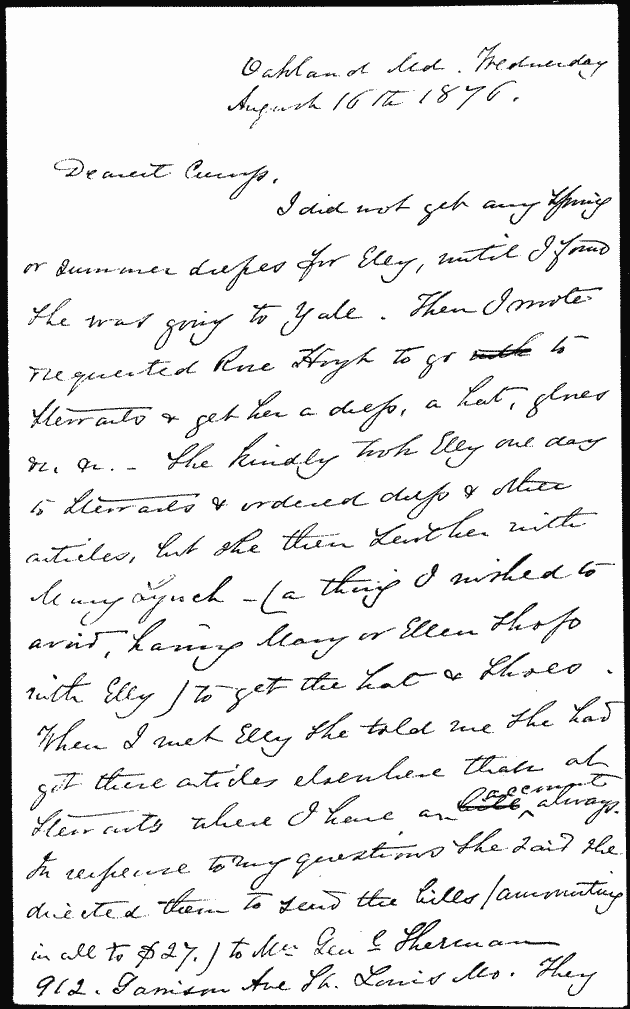 Oakland Md. Wednesday
August 16th 1876.
Dearest Cump,
I did not get any Spring
or summer dresses for Elly, until I found
she was going to Yale. Then I wrote
requested Rose Hoyt to go with to
Stewarts & get her a dress, a hat, gloves
&c. &c. – She kindly took Elly one day
to Stewarts & ordered dress & other
articles, but she then sent her with
Mary Lynch – (a thing I wished to
avoid, having Mary or Ellen shop
with Elly) to get the hat & shoes.
When I met Elly she told me she had
got these articles elsewhere than at
Stewarts where I have an bill account always.
In response to my questions she said she
directed them to send the bills (amounting
in all to $27.) to Mrs Genl Sherman
912. Garrison Ave St. Louis Mo. They